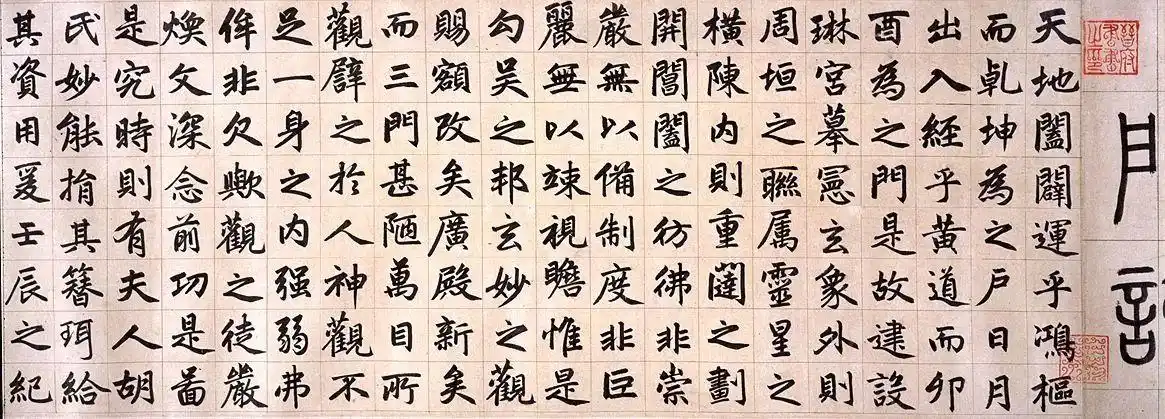 晉府書畫之印
天地闔闢運乎鴻樞
而乹坤為之戶日月
出入經乎黃道而卯
酉為之門是故建設
琳宮摹憲玄象外則
周垣之聯属靈星之
橫陳内則重闥之劃
開閶闔之彷彿非崇
嚴無以備制度非巨
麗無以竦視瞻惟是
勾吴之邦玄妙之觀
賜額改矣廣殿新矣
而三門甚陋萬目所
觀譬之於人神觀不
足一身之内强弱弗
侔非欠歟觀之徒嚴
煥文深念前功是啚
是究時則有夫人胡
氏妙能捐其簪珥給
其資用爰壬辰之紀